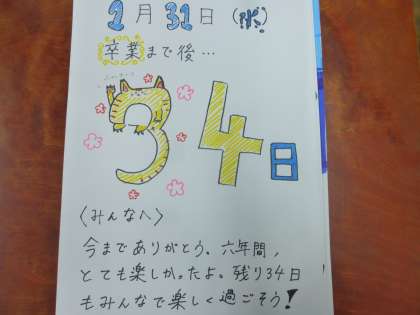 1月31日(水)
卒業まで後…
34日
〈みんなへ〉
今までありがとう。六年間、
とても楽しかったよ。残り34日
もみんなで楽しく過ごそう!